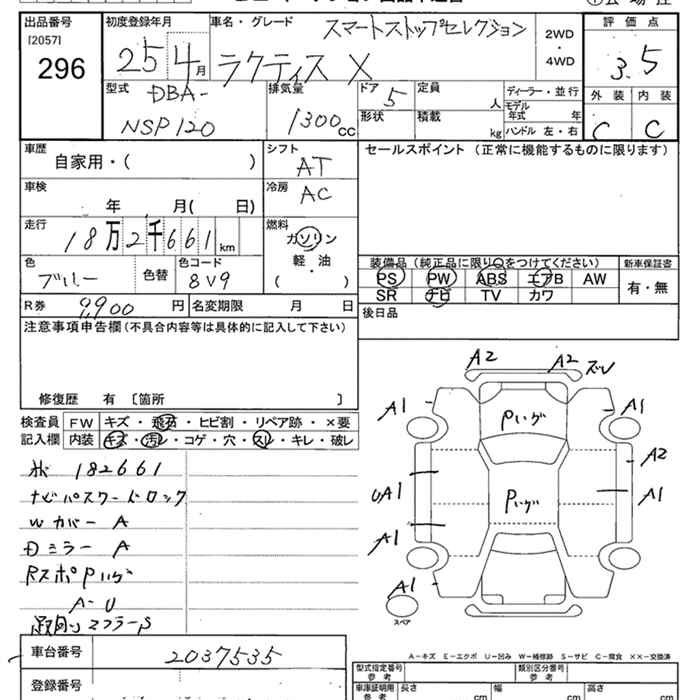 出品番号 初度登録年月 車名・グレード スマートストップセレクション 2WD ・ 4WD 評価点
[2057]
296 25 4月 ラクティス X 3.5
型式 DBA- 排気量 ドア 5 定員 人 ディーラー・並行 外装 内装
NSP120 1300cc 形状 積載 kg モデル年式 年 C C
ハンドル 左・右
車歴 自家用・( ) シフト AT セールスポイント (正常に機能するものに限ります)
車検 年 月( 日) 冷房 AC
走行 18万2千661km 燃料 ガソリン
軽・油
( )
色 ブルー 色替 色コード 8V9
装備品(純正品に限り○をつけてください) 新車保証書
PS PW ABS エアB AW 有・無
SR ナビ TV カワ
R券 9,900円 名変期限 月 日 後日品
注意事項申告欄(不具合内容等は具体的に記入して下さい)
修復歴 有 〔箇所 〕
検査員 FW キズ・飛石・ヒビ割・リペア跡・×要
記入欄 内装 キズ・汚レ・コゲ・穴・スレ・キレ・破レ
182661
ナビパスワードロック
Wカバー A
Dミラー A
RスポPハゲ
A-U
マフラーS
A2 A2 ズレ
A1 Pハゲ A1
A2
UA1 Pハゲ A1
A1
A1
スペア
A-キズ E-エクボ U-凹み W-補修跡 S-サビ C-腐食 XX-交換済
車台番号 2037535
登録番号
型式指定番号 参考 類別区分番号 参考
車庫証明用 参考 長さ cm 幅 cm 高さ cm